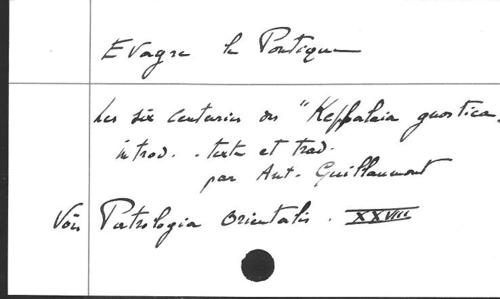 Evagre le Pontique
Les six Centuries des "Kephalaia gnostica,
introd. . texte et trad.
par Ant. Guillaumont
Voir Patrologia Orientalis . XXVIII